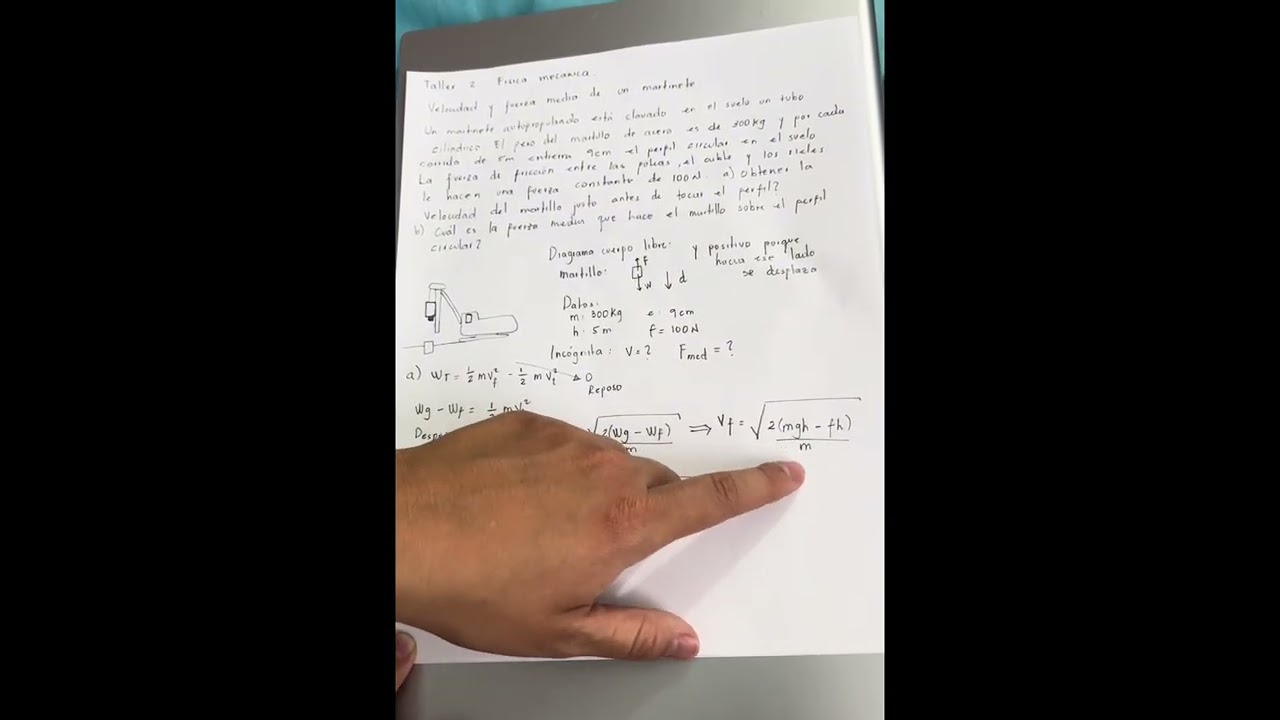 Taller 2 Física mecánica.
Velocidad y fuerza media de un martinete
Un martinete autopropulsado está clavado en el suelo un tubo
cilíndrico. El peso del martillo de acero es de 300kg y por cada
corrida de 5m entierra 9cm el perfil circular en el suelo
La fuerza de fricción entre las poleas, el cable y los rieles
le hacen una fuerza constante de 100N. a) Obtener la
Velocidad del martillo justo antes de tocar el perfil?
b) Cuál es la fuerza media que hace el martillo sobre el perfil
circular?
Diagrama cuerpo libre:
martillo:
F
W
d
y positivo porque
hacia ese lado
se desplaza
Datos:
m: 300kg e: 9cm
h: 5m f= 100N
Incógnita: V=? Fmed = ?
a) WT = 1/2 mv_f^2 - 1/2 mv_i^2 0
Reposo
Wg - Wf = 1/2 mv
Despe
√(2(Wg - Wf)/m) ⟹ Vf = √(2(mgh - fh)/m)